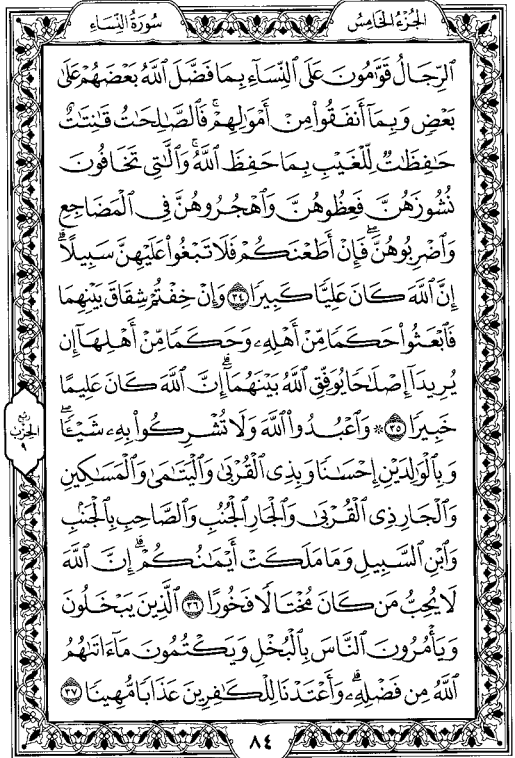 الجُزْءُ الخَامِسُ
سُورَةُ النِّسَاءِ
ٱلرِّجَالُ قَوَّٰمُونَ عَلَى ٱلنِّسَآءِ بِمَا فَضَّلَ ٱللَّهُ بَعْضَهُمْ عَلَىٰ
بَعْضٍ وَبِمَآ أَنفَقُوا۟ مِنْ أَمْوَٰلِهِمْ ۚ فَٱلصَّٰلِحَٰتُ قَٰنِتَٰتٌ
حَٰفِظَٰتٌ لِّلْغَيْبِ بِمَا حَفِظَ ٱللَّهُ ۚ وَٱلَّٰتِى تَخَافُونَ
نُشُوزَهُنَّ فَعِظُوهُنَّ وَٱهْجُرُوهُنَّ فِى ٱلْمَضَاجِعِ
وَٱضْرِبُوهُنَّ ۖ فَإِنْ أَطَعْنَكُمْ فَلَا تَبْغُوا۟ عَلَيْهِنَّ سَبِيلًا ۗ
إِنَّ ٱللَّهَ كَانَ عَلِيًّا كَبِيرًا ٣٤ وَإِنْ خِفْتُمْ شِقَاقَ بَيْنِهِمَا
فَٱبْعَثُوا۟ حَكَمًا مِّنْ أَهْلِهِۦ وَحَكَمًا مِّنْ أَهْلِهَآ إِن
يُرِيدَآ إِصْلَٰحًا يُوَفِّقِ ٱللَّهُ بَيْنَهُمَآ ۗ إِنَّ ٱللَّهَ كَانَ عَلِيمًا
خَبِيرًا ٣٥ ۞ وَٱعْبُدُوا۟ ٱللَّهَ وَلَا تُشْرِكُوا۟ بِهِۦ شَيْـًٔا ۖ
وَبِٱلْوَٰلِدَيْنِ إِحْسَٰنًا وَبِذِى ٱلْقُرْبَىٰ وَٱلْيَتَٰمَىٰ وَٱلْمَسَٰكِينِ
وَٱلْجَارِ ذِى ٱلْقُرْبَىٰ وَٱلْجَارِ ٱلْجُنُبِ وَٱلصَّاحِبِ بِٱلْجَنۢبِ
وَٱبْنِ ٱلسَّبِيلِ وَمَا مَلَكَتْ أَيْمَٰنُكُمْ ۗ إِنَّ ٱللَّهَ
لَا يُحِبُّ مَن كَانَ مُخْتَالًا فَخُورًا ٣٦ ٱلَّذِينَ يَبْخَلُونَ
وَيَأْمُرُونَ ٱلنَّاسَ بِٱلْبُخْلِ وَيَكْتُمُونَ مَآ ءَاتَىٰهُمُ
ٱللَّهُ مِن فَضْلِهِۦ ۗ وَأَعْتَدْنَا لِلْكَٰفِرِينَ عَذَابًا مُّهِينًا ٣٧
ربع
الحزب
٩
٨٤